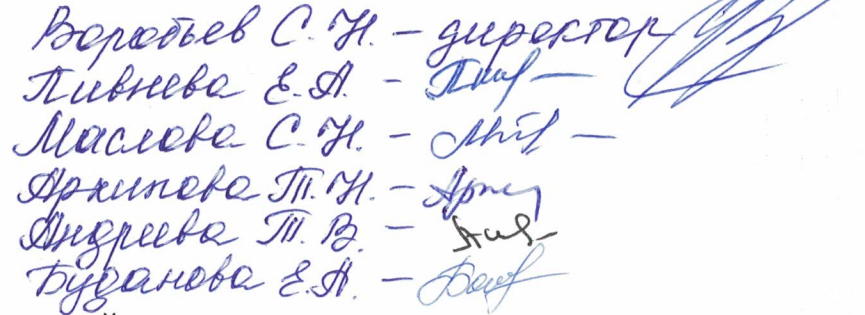 Воробьев С. Н. – директор
Пивнева Е. А. –
Маслова С. Н. –
Архипова Т. Н. –
Андреева Т. В. –
Буданова Е. А. –